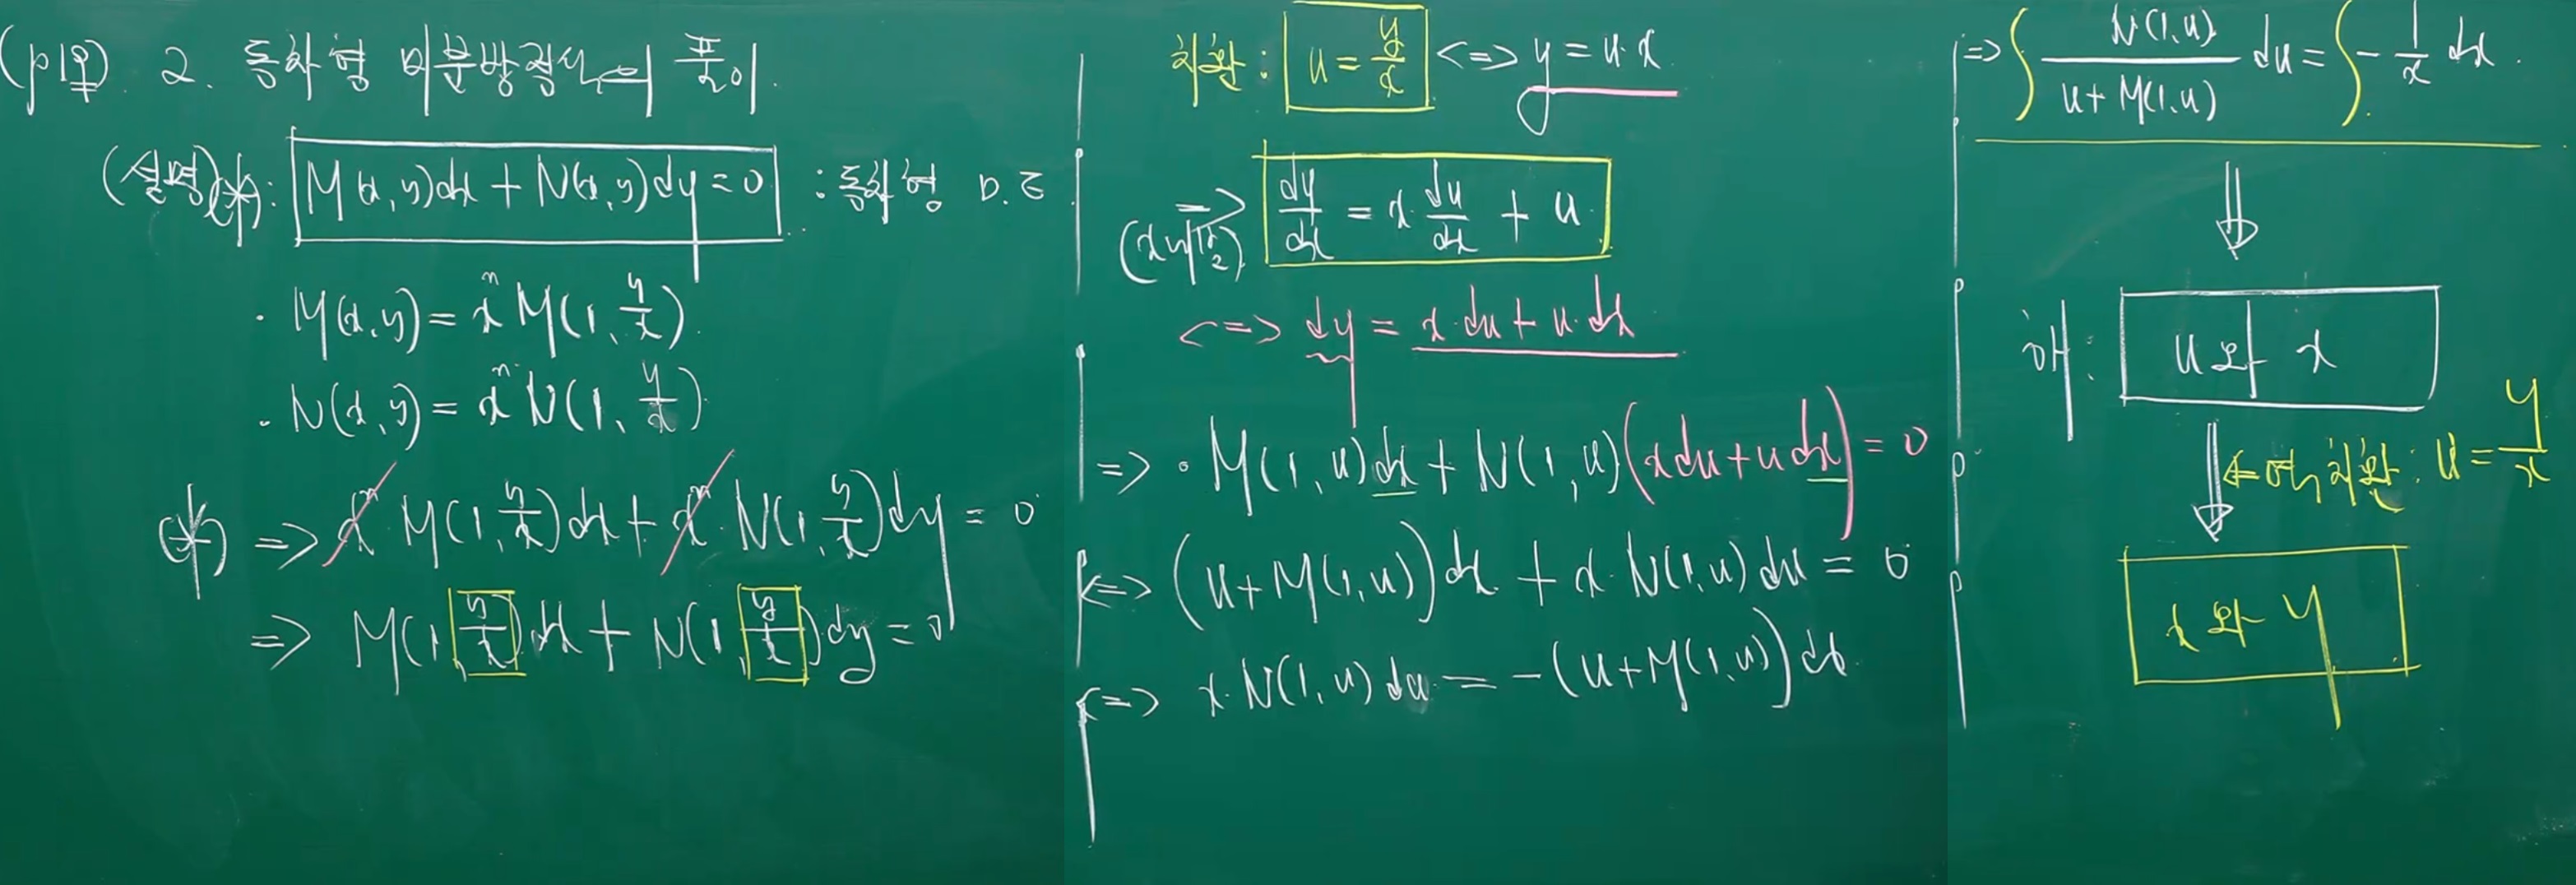 (p19우) 2. 동차형 미분방정식의 풀이.
(설명)(*): M(x,y)dx + N(x,y)dy = 0 : 동차형 D.E
· M(x,y) = xⁿ M(1, y/x).
· N(x,y) = xⁿ N(1, y/x)
(*) => xⁿ·M(1, y/x)dx + xⁿ·N(1, y/x)dy = 0
=> M(1, y/x)dx + N(1, y/x)dy = 0
치환: u = y/x <=> y = u·x
=> dy/dx = x·du/dx + u
<=> dy = x·du + u·dx
=> · M(1,u)dx + N(1,u)(xdu + udx) = 0
<=> (u+M(1,u))dx + x·N(1,u)du = 0
<=> x·N(1,u)du = -(u+M(1,u))dx
=> ∫ N(1,u)/(u+M(1,u)) du = ∫ -1/x dx.
⇓
해: u와 x
⇓ ← 역치환: u = y/x
x와 y